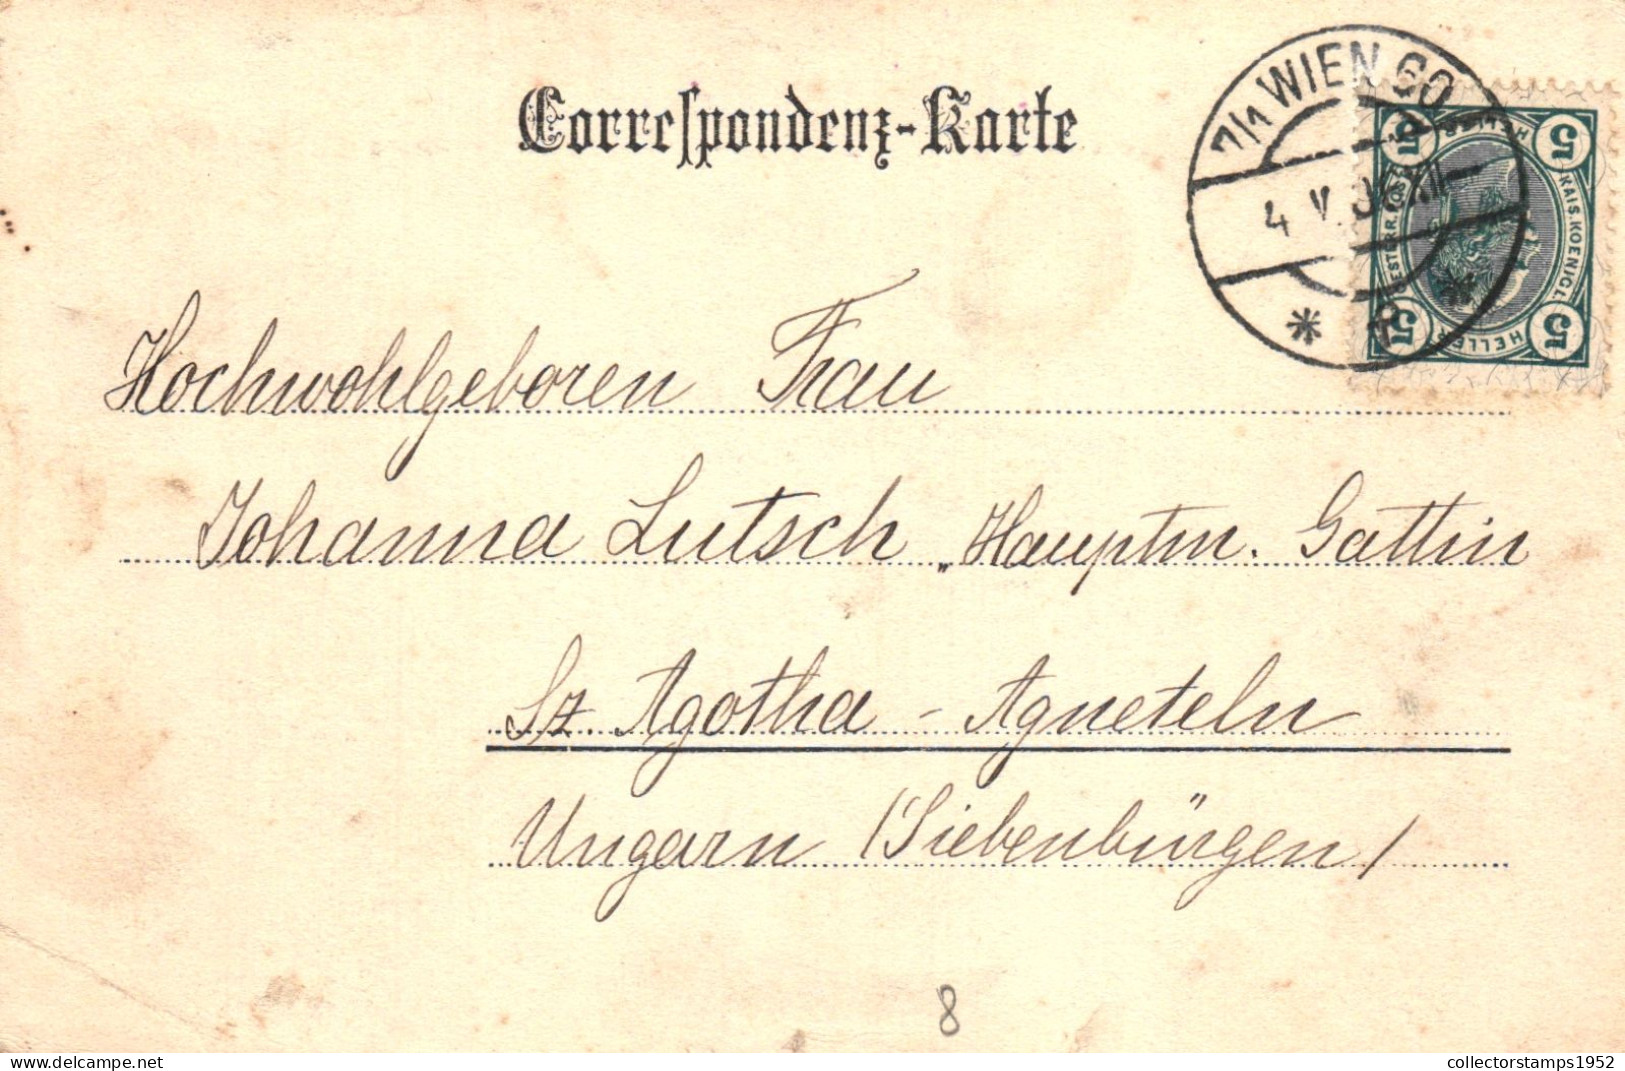 Correspondenz-Karte
7/1 WIEN 60
4 V 06 XII—
5 5 5 5
HELLER HELLER
KAIS. KOENIGL.
OESTERR. POST
Hochwohlgeboren Frau
Johanna Lutsch „Hauptm. Gattin
Sz. Agotha - Agneteln
Ungarn /Siebenbürgen/
8
delcampe.net
collectorstamps1952